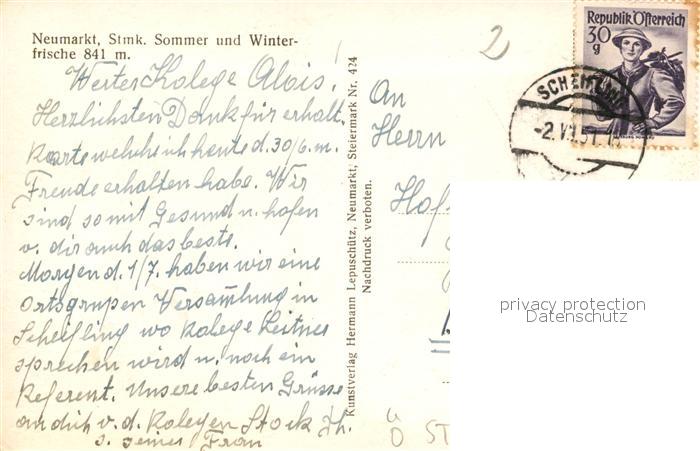 Neumarkt, Stmk. Sommer und Winter-
frische 841 m.
Werter Kolege Alois!
Herzlichsten Dank für erhalt.
Karte welche ich heute d. 30/6. m.
Freude erhalten habe. Wir
sind somit Gesund u. hofen
v. dir auch das beste.
Morgen d. 1/7. haben wir eine
Ortsgrupen Versam̄lung in
Scheifling wo Kolege Leitner
sprechen wird u. noch ein
Referent. Unsere besten Grüsse
an dich v. d. Kolegen Stock Jh.
s. seiner Frau
Kunstverlag Hermann Lepuschütz, Neumarkt, Steiermark Nr. 424
Nachdruck verboten.
2
An
Herrn
Republik Österreich
30
g
-2.VII.51
privacy protection
Datenschutz